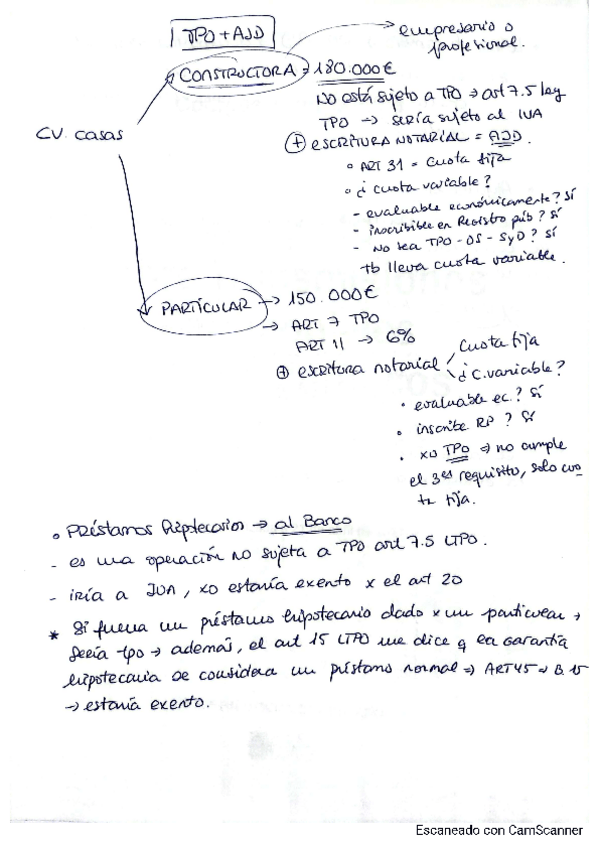 TPO + AJD
empresario o
profesional.
CONSTRUCTORA → 180.000€
No está sujeto a TPO → art 7.5 ley
TPO → sería sujeto al IVA
+ ESCRITURA NOTARIAL = AJD.
CV. casas
• ART 31 = Cuota fija
• ¿ cuota variable?
- evaluable económicamente? Sí
- inscribible en Registro púb? Sí
- No sea TPO - OS - SyD? Sí
tb lleva cuota variable.
PARTICULAR → 150.000€
→ ART 7 TPO
ART 11 → 6%
+ escritura notarial
Cuota fija
¿C. variable?
• evaluable ec.? Sí
• inscribe RP? Sí
• xo TPO ⇒ no cumple
el 3er requisito, solo cuo
ta fija.
• Préstamos hipotecarios → al Banco
- es una operación no sujeta a TPO art 7.5 LTPO.
- iría a IVA, xo estaría exento x el art 20
* Si fuera un préstamo hipotecario dado x un particular →
sería tpo → además, el art 15 LTPO me dice q la garantía
hipotecaria se considera un préstamo normal ⇒ ART 45 → B. 15
→ estaría exento.
Escaneado con CamScanner